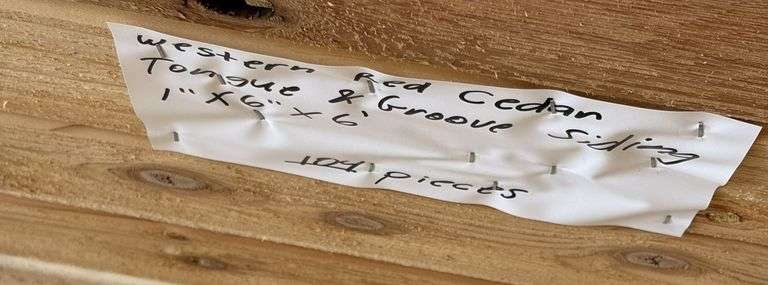 Western Red Cedar
Tongue & Groove Siding
1" X 6" X 6'
pieces